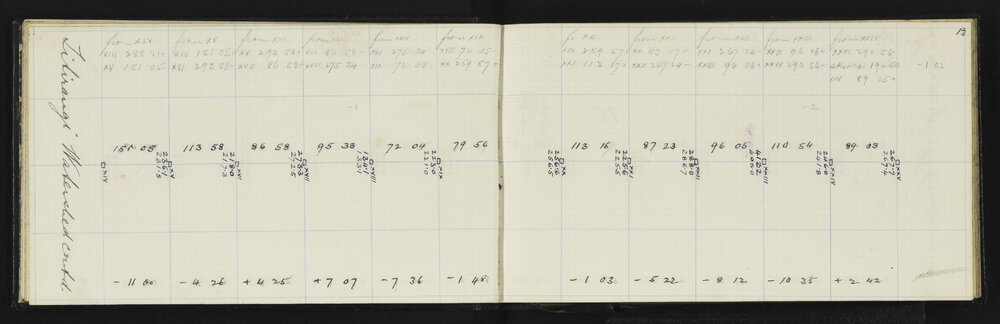 13
Titirangi Watershed contd.
from XIV from XV from XVI from XVII from XVIII from XIX
XIII 288 21+ XIV 151 05+ XV 293 58+ XVI 86 58+ XVII 275 34 XVIII 72 05
XV 151 05 XVI 293 58+ XVII 86 58+ XVIII 275 34 XIX 72 05 XX 259 57+
fr XX from XXI from XXII from XXIII from XXIV
XIX 259 57+ XX 113 17+ XXI 267 24 XXII 96 06+ XXIII 290 56
XXI 113 17+ XXII 267 24 XXIII 96 06+ XXIV 290 56 194 50 -1 02
XXV 89 05+
-1
-2
151 05 113 58 86 58 95 33 72 04 79 56
113 16 87 23 96 05 110 54 89 03
XIV
XV
2361
2351.8
XVI
2180
2173
XVII
2733
2725
XVIII
1341
1337
XIX
2230
2210
XX
2566
2565
XXI
2256
2255
XXII
2880
2867
XXIII
4122
4080
XXIV
2460
2418
XXV
2677
2674
- 11 00 - 4 26 + 4 25 + 7 07 - 7 36 - 1 48
- 1 03 - 5 22 - 8 12 - 10 35 + 2 42